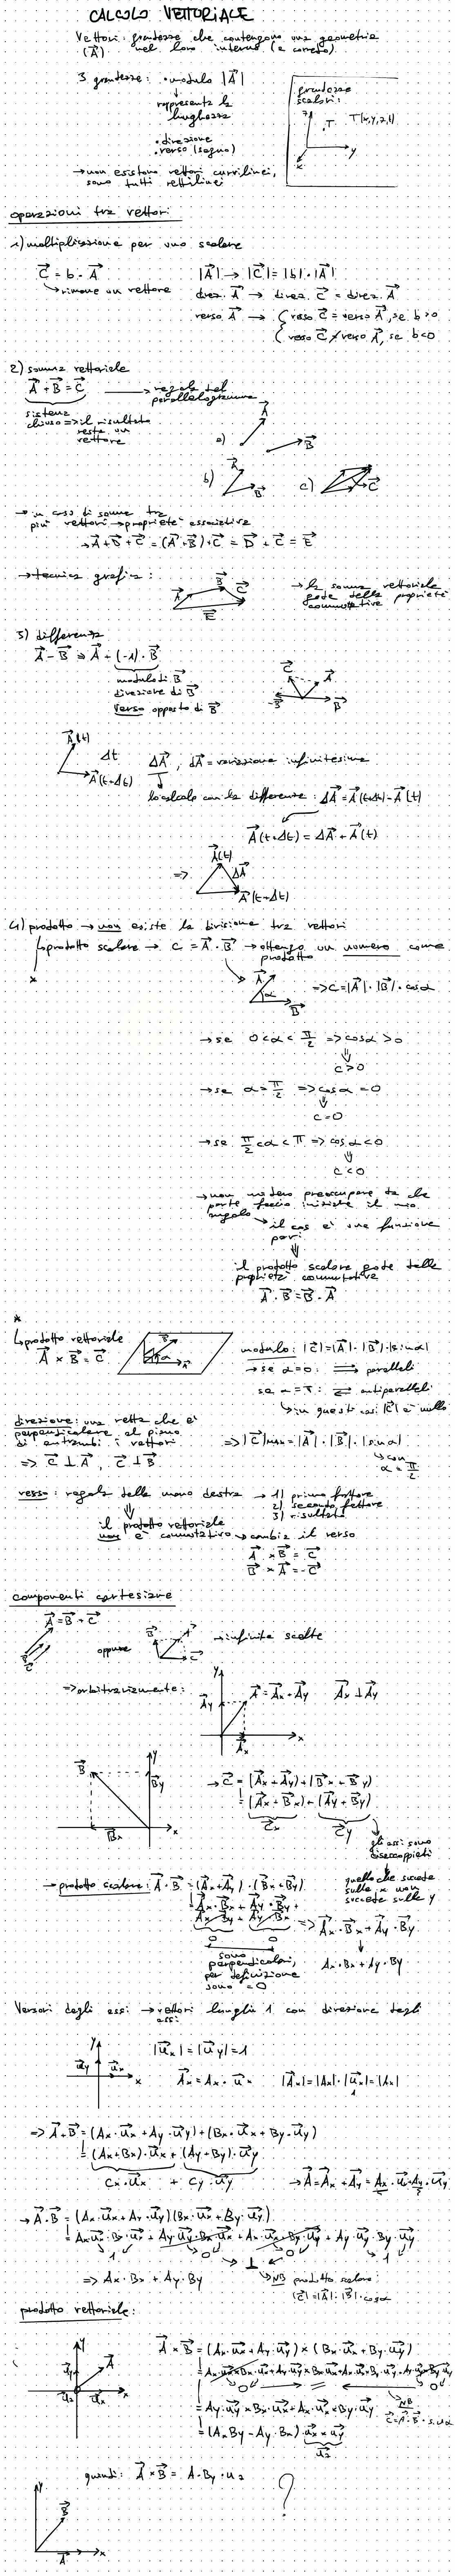 CALCOLO VETTORIALE
Vettori: grandezze che contengono una geometria
(A⃗) nel loro interno (e correto)
3 grandezze: • modulo |A⃗|
↓
rappresenta la
lunghezza
• direzione
• verso (segno)
grandezze
scalari:
z
.T T(x,y,z,t)
y
x
→ non esistono vettori curvilinei,
sono tutti rettilinei
operazioni tra vettori
1) moltiplicazione per uno scalare
C⃗ = b · A⃗ |A⃗| → |C⃗| = |b| · |A⃗|
↳ rimane un vettore direz. A⃗ → direz. C⃗ = direz. A⃗
verso A⃗ → { verso C⃗ = verso A⃗, se b>0
{ verso C⃗ ≠ verso A⃗, se b<0
2) somma vettoriale
A⃗ + B⃗ = C⃗ → regola del
parallelogramma
sistema
chiuso => il risultato
resta un
vettore
a) A⃗ B⃗
b) A⃗ B⃗ c) C⃗
→ in caso di somme tra
più vettori → proprietà associativa
→ A⃗ + B⃗ + C⃗ = (A⃗ + B⃗) + C⃗ = D⃗ + C⃗ = E⃗
→ tecnica grafica: A⃗ B⃗ C⃗ E⃗
→ la somma vettoriale
gode della proprietà
commutativa
3) differenza
A⃗ - B⃗ => A⃗ + (-1) · B⃗
modulo di B⃗
direzione di B⃗
verso opposto di B⃗
C⃗ A⃗ -B⃗ B⃗
A⃗(t) Δt A⃗(t+Δt) ΔA⃗, dA⃗ = variazione infinitesima
lo calcolo con la differenza: ΔA⃗ = A⃗(t+Δt) - A⃗(t)
A⃗(t+Δt) = ΔA⃗ + A⃗(t)
=> A⃗(t) ΔA⃗ A⃗(t+Δt)
4) prodotto → non esiste la divisione tra vettori
↳ prodotto scalare → c = A⃗ · B⃗ → ottengo un numero come
prodotto
*
A⃗ α B⃗ => c = |A⃗| · |B⃗| · cosα
→ se 0<α<π/2 => cosα>0
⇓
c>0
→ se α = π/2 => cosα = 0
⇓
c=0
→ se π/2<α<π => cosα<0
⇓
c<0
→ non mi devo preoccupare da che
parte faccio iniziare il mio
angolo → il cos è una funzione
pari
⇓
il prodotto scalare gode della
proprietà commutativa
A⃗ · B⃗ = B⃗ · A⃗
*
↳ prodotto vettoriale
A⃗ × B⃗ = C⃗
B⃗ α A⃗
modulo: |C⃗| = |A⃗| · |B⃗| · |sinα|
→ se α=0: ⇉ paralleli
se α=π: ⇄ antiparalleli
↳ in questi casi |C⃗| è nullo
direzione: una retta che è
perpendicolare al piano
di entrambi i vettori
=> C⃗ ⊥ A⃗, C⃗ ⊥ B⃗
=> |C⃗|max = |A⃗| · |B⃗| · |sinα|
↳ con
α = π/2
verso: regola della mano destra → 1) primo fattore
2) secondo fattore
3) risultato
⇓
il prodotto vettoriale
non è commutativo → cambia il verso
A⃗ × B⃗ = C⃗
B⃗ × A⃗ = -C⃗
componenti cartesiane
A⃗ = B⃗ + C⃗
B⃗ C⃗ oppure B⃗ A⃗ C⃗ → infinite scelte
=> arbitrariamente: y A⃗y A⃗ = A⃗x + A⃗y A⃗x ⊥ A⃗y
A⃗x x
B⃗ y B⃗y B⃗x x
→ C⃗ = (A⃗x + A⃗y) + (B⃗x + B⃗y)
= (A⃗x + B⃗x) + (A⃗y + B⃗y)
C⃗x C⃗y
gli assi sono
disaccoppiati
↓
quello che succede
sulla x non
succede sulle y
→ prodotto scalare: A⃗ · B⃗ = (A⃗x + A⃗y) · (B⃗x + B⃗y)
= A⃗x · B⃗x + A⃗y · B⃗y +
A⃗x · B⃗y + A⃗y · B⃗x => A⃗x · B⃗x + A⃗y · B⃗y
0 0
sono
perpendicolari,
per definizione
sono = 0
↓
Ax · Bx + Ay · By
Versori degli assi → vettori lunghi 1 con direzione degli
assi
y u⃗y u⃗x x
|u⃗x| = |u⃗y| = 1
A⃗x = Ax · u⃗x |A⃗x| = |Ax| · |u⃗x| = |Ax|
1
=> A⃗ + B⃗ = (Ax · u⃗x + Ay · u⃗y) + (Bx · u⃗x + By · u⃗y)
= (Ax + Bx) · u⃗x + (Ay + By) · u⃗y
Cx · u⃗x + Cy · u⃗y → A⃗ = A⃗x + A⃗y = Ax · u⃗x + Ay · u⃗y
→ A⃗ · B⃗ = (Ax · u⃗x + Ay · u⃗y)(Bx · u⃗x + By · u⃗y)
= Ax u⃗x · Bx · u⃗x + Ay u⃗y · Bx · u⃗x + Ax · u⃗x · By · u⃗y + Ay · u⃗y · By · u⃗y
1 0 ⊥ 0 1
=> Ax · Bx + Ay · By
↳ NB prodotto scalare:
|C⃗| = |A⃗| · |B⃗| · cosα
prodotto vettoriale:
y u⃗y A⃗ u⃗z u⃗x x
A⃗ × B⃗ = (Ax · u⃗x + Ay · u⃗y) × (Bx · u⃗x + By · u⃗y)
= Ax · u⃗x × Bx · u⃗x + Ay · u⃗y × Bx · u⃗x + Ax · u⃗x × By · u⃗y + Ay · u⃗y × By u⃗y
0 0
= Ay · u⃗y × Bx · u⃗x + Ax · u⃗x × By · u⃗y
NB
C⃗ = A⃗ · B⃗ · sinα
= (Ax By - Ay · Bx) · u⃗x × u⃗y
u⃗z
quindi: A⃗ × B⃗ = A · By · uz ?
y B⃗ A⃗ x